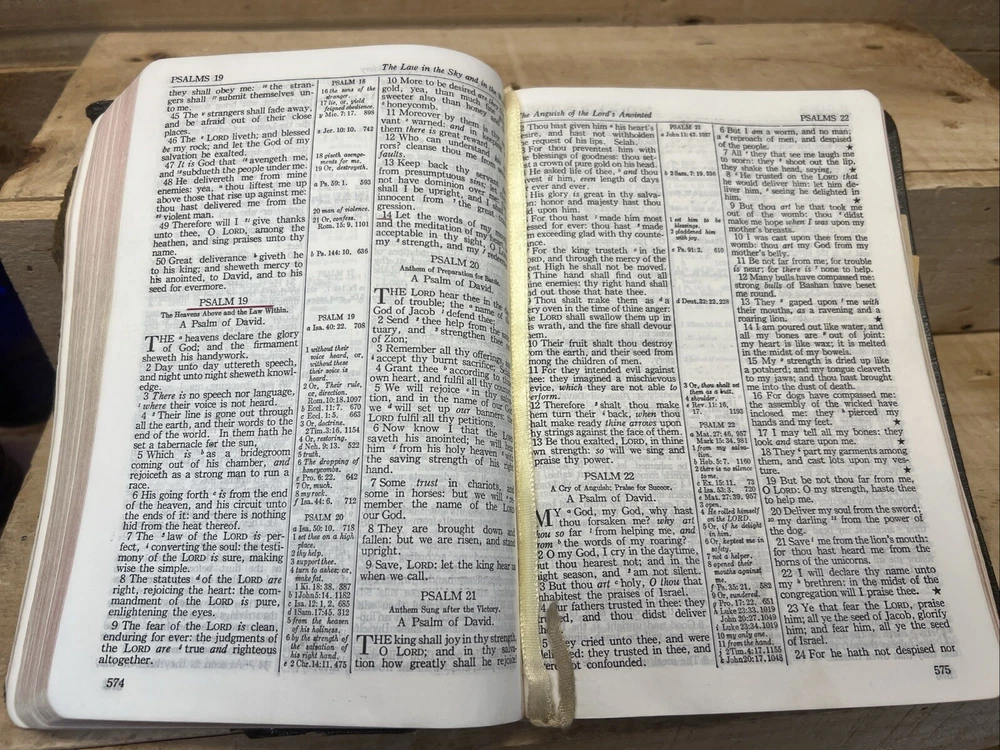 PSALMS 19
The Law in the Sky and in the
they shall obey me: the stran-
gers shall submit themselves un-
to me.
45 The strangers shall fade away,
and be afraid out of their close
places.
46 The LORD liveth; and blessed
be my rock; and let the God of my
salvation be exalted.
47 It is God that avengeth me,
and subdueth the people under me.
48 He delivereth me from mine
enemies: yea, thou liftest me up
above those that rise up against me:
thou hast delivered me from the
violent man.
49 Therefore will I give thanks
unto thee, O LORD, among the
heathen, and sing praises unto thy
name.
50 Great deliverance giveth he
to his king; and sheweth mercy to
his anointed, to David, and to his
seed for evermore.
PSALM 19
The Heavens Above and the Law Within.
A Psalm of David.
THE heavens declare the glory
of God; and the firmament
sheweth his handywork.
2 Day unto day uttereth speech,
and night unto night sheweth knowl-
edge.
3 There is no speech nor language,
where their voice is not heard.
4 Their line is gone out through
all the earth, and their words to the
end of the world. In them hath he
set a tabernacle for the sun,
5 Which is as a bridegroom
coming out of his chamber, and
rejoiceth as a strong man to run a
race.
6 His going forth is from the end
of the heaven, and his circuit unto
the ends of it: and there is nothing
hid from the heat thereof.
7 The law of the LORD is per-
fect, converting the soul: the testi-
mony of the LORD is sure, making
wise the simple.
8 The statutes of the LORD are
right, rejoicing the heart: the com-
mandment of the LORD is pure,
enlightening the eyes.
9 The fear of the LORD is clean,
enduring for ever: the judgments of
the LORD are true and righteous
altogether.
PSALM 18
16 the sons of the
stranger.
17 lie, or, yield
feigned obedience.
v Mic. 7:17. 898
x Jer. 10:10. 742
18 giveth avenge-
ments for me.
19 Or, destroyeth.
a Ps. 59:1. 593
20 man of violence.
21 Or, confess.
Rom. 15:9. 1101
b Ps. 144:10. 636
PSALM 19
a Isa. 40:22. 708
1 without their
voice heard, or,
without these
their voice is
heard.
2 Or, Their rule,
or, direction.
Rom. 10:18. 1097
b Eccl. 11:7. 670
c Eccl. 1:5. 663
3 Or, doctrine.
2 Tim. 3:16. 1154
4 Or, restoring.
d Neh. 9:13. 522
5 truth.
6 The dropping of
honeycombs.
e Pro. 6:22. 642
7 Or, much.
8 my rock.
f Isa. 44:6. 712
PSALM 20
a Isa. 50:10. 718
1 set thee on a high
place.
2 thy help.
3 support thee.
4 turn to ashes; or,
make fat.
1 Ki. 18:38. 387
b 1 John 5:14. 1182
c Isa. 12:1, 2. 685
d 1 Sam. 17:45. 312
5 from the heaven
of his holiness.
6 by the strength of
the salvation of
his right hand.
e 2 Chr. 14:11. 475
10 More to be desired are they
gold, yea, than much
sweeter also than honey and
honeycomb.
11 Moreover by them is thy
vant warned: and in
them there is great reward.
12 Who can understand
rors? cleanse thou me from
faults.
13 Keep back thy servant
from presumptuous sins; let
not have dominion over me:
shall I be upright, and I shall
innocent from the great
gression.
14 Let the words of my mouth,
and the meditation of my
acceptable in thy sight, O L
my strength, and my redeemer.
PSALM 20
Anthem of Preparation for Battle.
A Psalm of David.
THE LORD hear thee in the
of trouble; the name of
God of Jacob defend thee
2 Send thee help from the
tuary, and strengthen thee
of Zion;
3 Remember all thy offerings,
accept thy burnt sacrifice.
4 Grant thee according to
own heart, and fulfil all thy
5 We will rejoice in thy
tion, and in the name of our God
we will set up our banners:
LORD fulfil all thy petitions.
6 Now know I that the LORD
saveth his anointed; he will
him from his holy heaven
the saving strength of his right
hand.
7 Some trust in chariots, and
some in horses: but we will
member the name of the LORD
our God.
8 They are brought down and
fallen: but we are risen, and stand
upright.
9 Save, LORD: let the king hear us
when we call.
PSALM 21
Anthem Sung after the Victory.
A Psalm of David.
THE king shall joy in thy strength,
O LORD; and in thy salva-
tion how greatly shall he rejoice!
574
the Anguish of the Lord's Anointed
PSALMS 22
2 Thou hast given him his heart's
desire, and hast not withholden
the request of his lips. Selah.
3 For thou preventest him with
the blessings of goodness: thou set-
test a crown of pure gold on his head.
4 He asked life of thee, and thou
gavest it him, even length of days
for ever and ever.
5 His glory is great in thy salva-
tion: honour and majesty hast thou
laid upon him.
6 For thou hast made him most
blessed for ever: thou hast made
him exceeding glad with thy counte-
nance.
7 For the king trusteth in the
LORD, and through the mercy of the
most High he shall not be moved.
8 Thine hand shall find out all
thine enemies: thy right hand shall
find out those that hate thee.
9 Thou shalt make them as a
fiery oven in the time of thine anger:
the LORD shall swallow them up in
his wrath, and the fire shall devour
10 Their fruit shalt thou destroy
from the earth, and their seed from
among the children of men.
11 For they intended evil against
thee: they imagined a mischievous
device, which they are not able to
perform.
12 Therefore shalt thou make
them turn their back, when thou
shalt make ready thine arrows upon
thy strings against the face of them.
13 Be thou exalted, LORD, in thine
own strength: so will we sing and
praise thy power.
PSALM 22
A Cry of Anguish; Praise for Succor.
A Psalm of David.
MY God, my God, why hast
thou forsaken me? why art
thou so far from helping me, and
from the words of my roaring?
2 O my God, I cry in the daytime,
but thou hearest not; and in the
night season, and am not silent.
3 But thou art holy, O thou that
inhabitest the praises of Israel.
4 Our fathers trusted in thee: they
trusted, and thou didst deliver
5 They cried unto thee, and were
delivered: they trusted in thee, and
were not confounded.
PSALM 21
a John 11:42. 1037
b 2 Sam. 7:19. 336
1 set him to be
blessings.
2 gladdened him
with joy.
c Ps. 91:2. 610
d Deut. 32:22. 228
3 Or, thou shalt set
them as a butt.
4 shoulder.
e Rev. 11:16,
17. 1193
PSALM 22
a Mat. 27:46. 957
Mark 15:34. 981
1 from my salva-
tion.
b Heb. 5:7. 1160
2 there is no silence
to me.
c Ex. 15:11. 73
d Isa. 53:3. 720
e Mat. 27:39. 957
3 open.
4 He rolled himself
on the LORD.
5 Or, if he delight
in him.
6 Or, keptest me in
safety.
7 not a helper.
8 opened their
mouths against
me.
f Ps. 35:21. 582
9 Or, sundered.
g Pro. 17:22. 651
h Luke 23:33. 1019
John 20:27. 1049
i Luke 23:34. 1019
10 my only one.
11 from the hand.
j 2 Tim. 4:17. 1155
k John 20:17. 1048
6 But I am a worm, and no man;
a reproach of men, and despised
of the people.
7 All they that see me laugh me
to scorn: they shoot out the lip,
they shake the head, saying,
8 He trusted on the LORD that
he would deliver him: let him de-
liver him, seeing he delighted in
him.
9 But thou art he that took me
out of the womb: thou didst
make me hope when I was upon my
mother's breasts.
10 I was cast upon thee from the
womb: thou art my God from my
mother's belly.
11 Be not far from me; for trouble
is near; for there is none to help.
12 Many bulls have compassed me:
strong bulls of Bashan have beset
me round.
13 They gaped upon me with
their mouths, as a ravening and a
roaring lion.
14 I am poured out like water, and
all my bones are out of joint:
my heart is like wax; it is melted
in the midst of my bowels.
15 My strength is dried up like
a potsherd; and my tongue cleaveth
to my jaws; and thou hast brought
me into the dust of death.
16 For dogs have compassed me:
the assembly of the wicked have
inclosed me: they pierced my
hands and my feet.
17 I may tell all my bones: they
look and stare upon me.
18 They part my garments among
them, and cast lots upon my ves-
ture.
19 But be not thou far from me,
O LORD: O my strength, haste thee
to help me.
20 Deliver my soul from the sword;
my darling from the power of the
dog.
21 Save me from the lion's mouth:
for thou hast heard me from the
horns of the unicorns.
22 I will declare thy name unto
my brethren: in the midst of the
congregation will I praise thee.
23 Ye that fear the LORD, praise
him; all ye the seed of Jacob, glorify
him; and fear him, all ye the seed
of Israel.
24 For he hath not despised nor
575